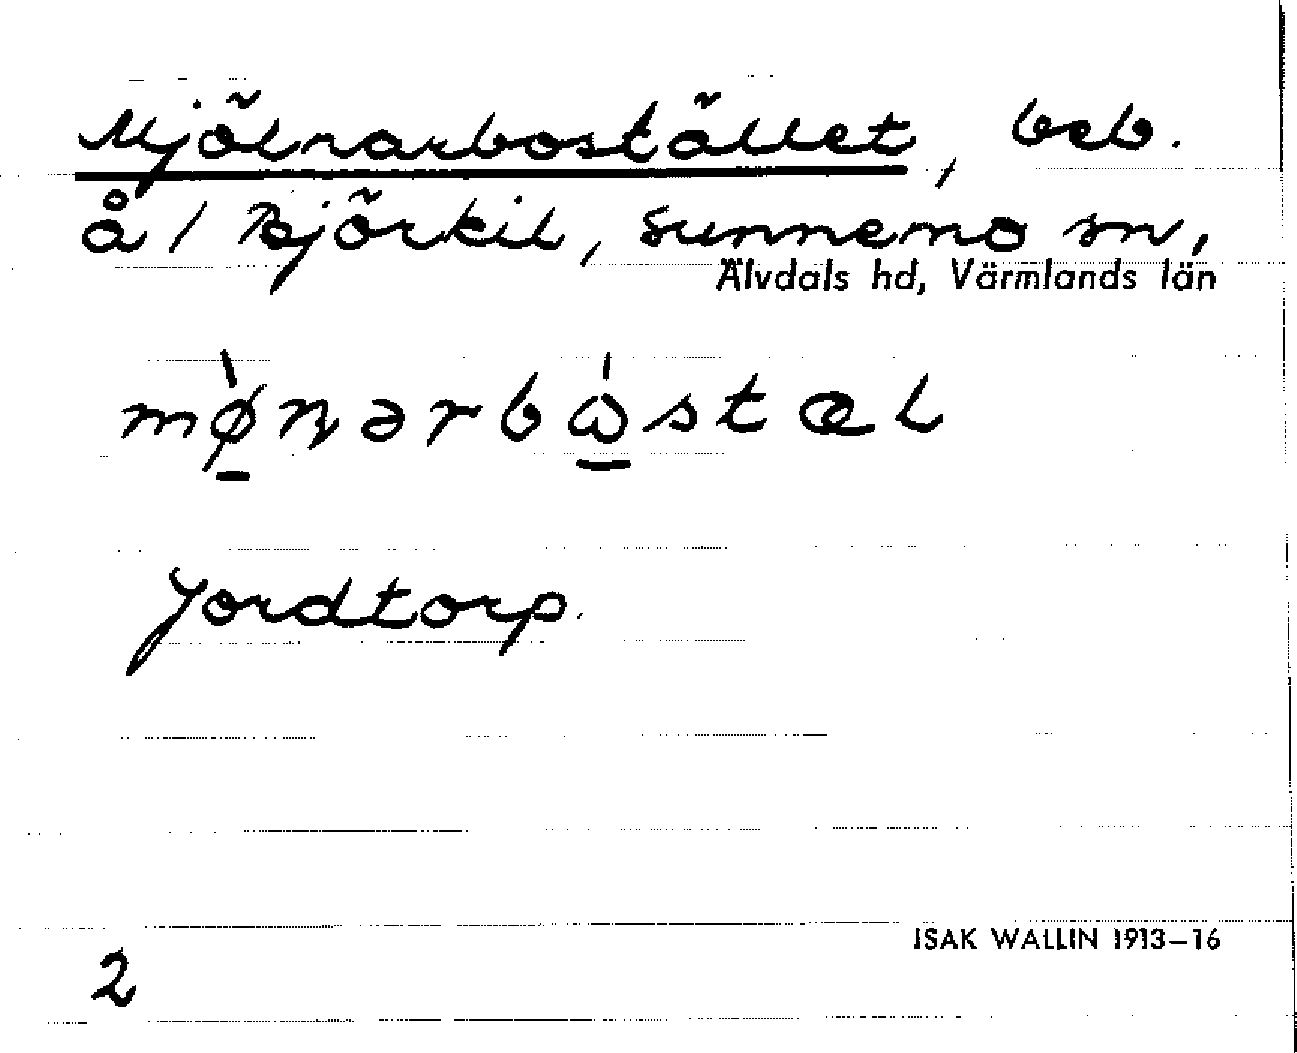 Mjölnarbostället, beb.
å 1 Björkil, Sunnemo sn,
Älvdals hd, Värmlands län
mø̠̀ɳərbώ̠stæl
Jordtorp.
ISAK WALLIN 1913–16
2